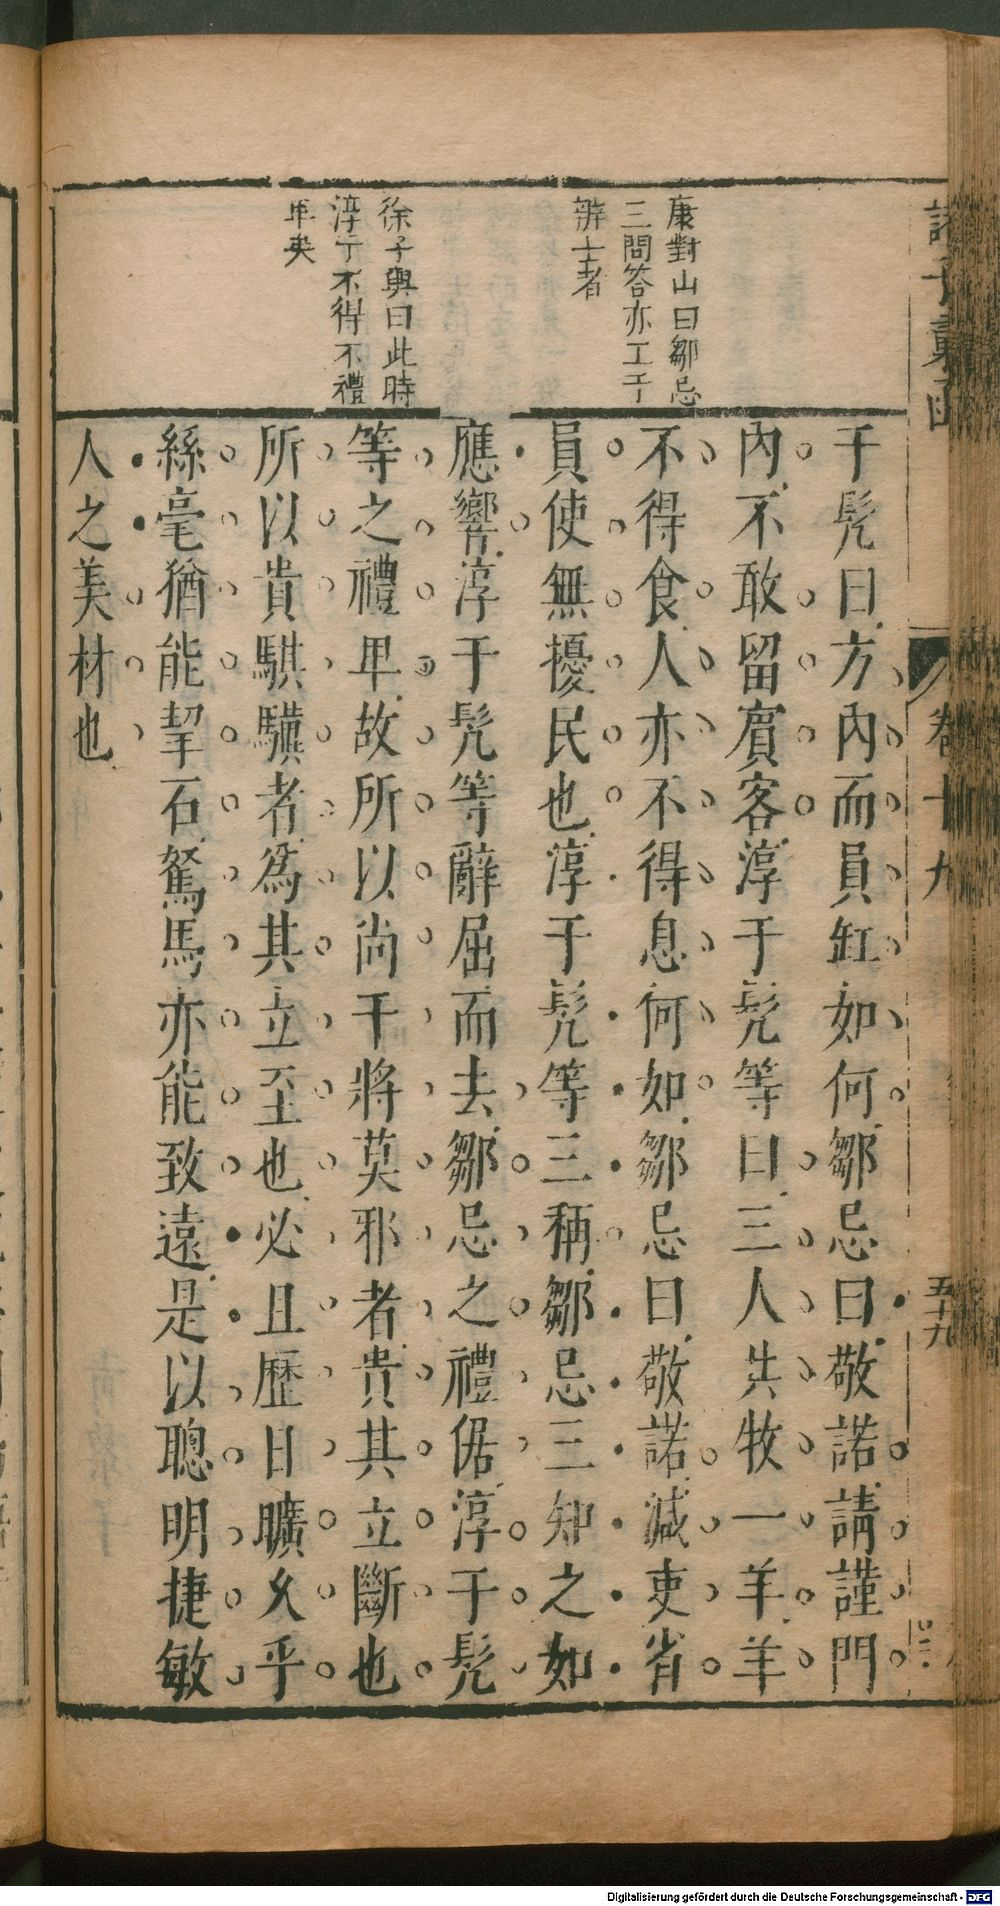 康對山曰鄒忌
三問答亦工于
辨士者
徐子與曰此時
淳于不得不禮
卑矣
于髠曰方內而員缸如何鄒忌曰敬諾請謹門
內不敢留賓客淳于髠等曰三人共牧一羊羊
不得食人亦不得息何如鄒忌曰敬諾減吏省
員使無擾民也淳于髠等三稱鄒忌三知之如
應響淳于髠等辭屈而去鄒忌之禮倨淳于髠
等之禮卑故所以尚干將莫邪者貴其立斷也
所以貴騏驥者為其立至也必且歷日曠久乎
絲毫猶能挈石駑馬亦能致遠是以聰明捷敏
人之美材也
卷十九
五十九
Digitalisierung gefördert durch die Deutsche Forschungsgemeinschaft - DFG